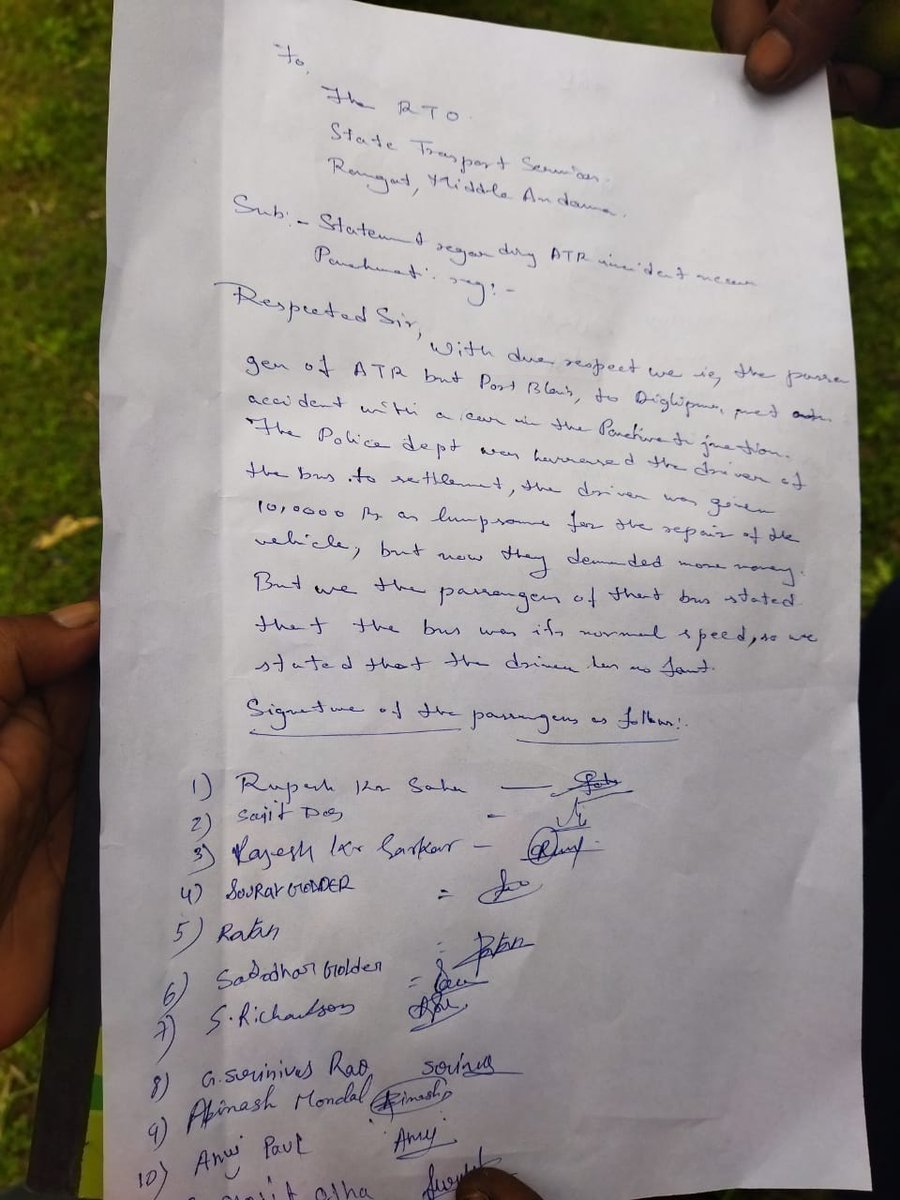 To,
The RTO.
State Trasport Services.
Rangat, Middle Andaman.
Sub:- Statement regarding ATR incident
reg:-
Respected Sir,
With due respect we ie, the passen
gers of ATR bus Port Blair, to Diglipur, met
accident with a car in the junction.
The Police dept was harrased the driver of
the bus. to settlement, the driver was given
10,0000 Rs as lumpsome for the repair of the
vehicle, but now they demanded more money.
But we the passengers of that bus stated
that the bus was its normal speed, so we
stated that the driver has no faut.
Signature of the passengers as follows:.
1) Rupesh Kr Saha — Saha
2) Sajit Das -
3) Rajesh Kr Sarkar -
4) SOURAV GOLDER =
5) Ratan = Ratan
6) Golder =
7) S. Richardson
8) G. Surinivas Rao
9) Abinash Mondal Abinash
10) Anuj Paul Anuj